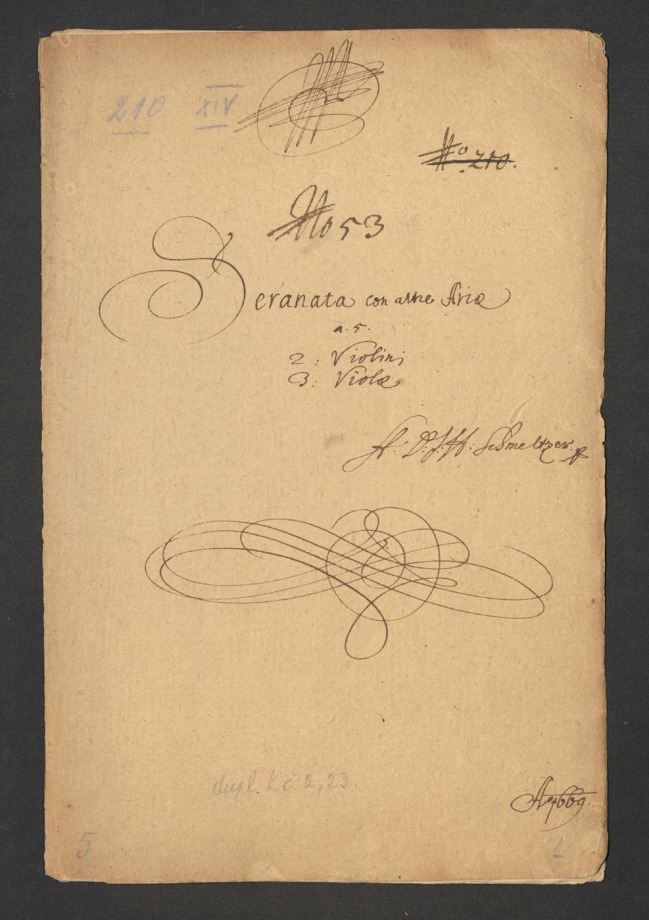 210 XIV
No 210.
No 53
Seranata con altre Ariae
a. 5.
2: Violini
3: Violae
A: D: J: H: Schmeltzer
dupl. k č. 2, 23.
A 1669.
5 1